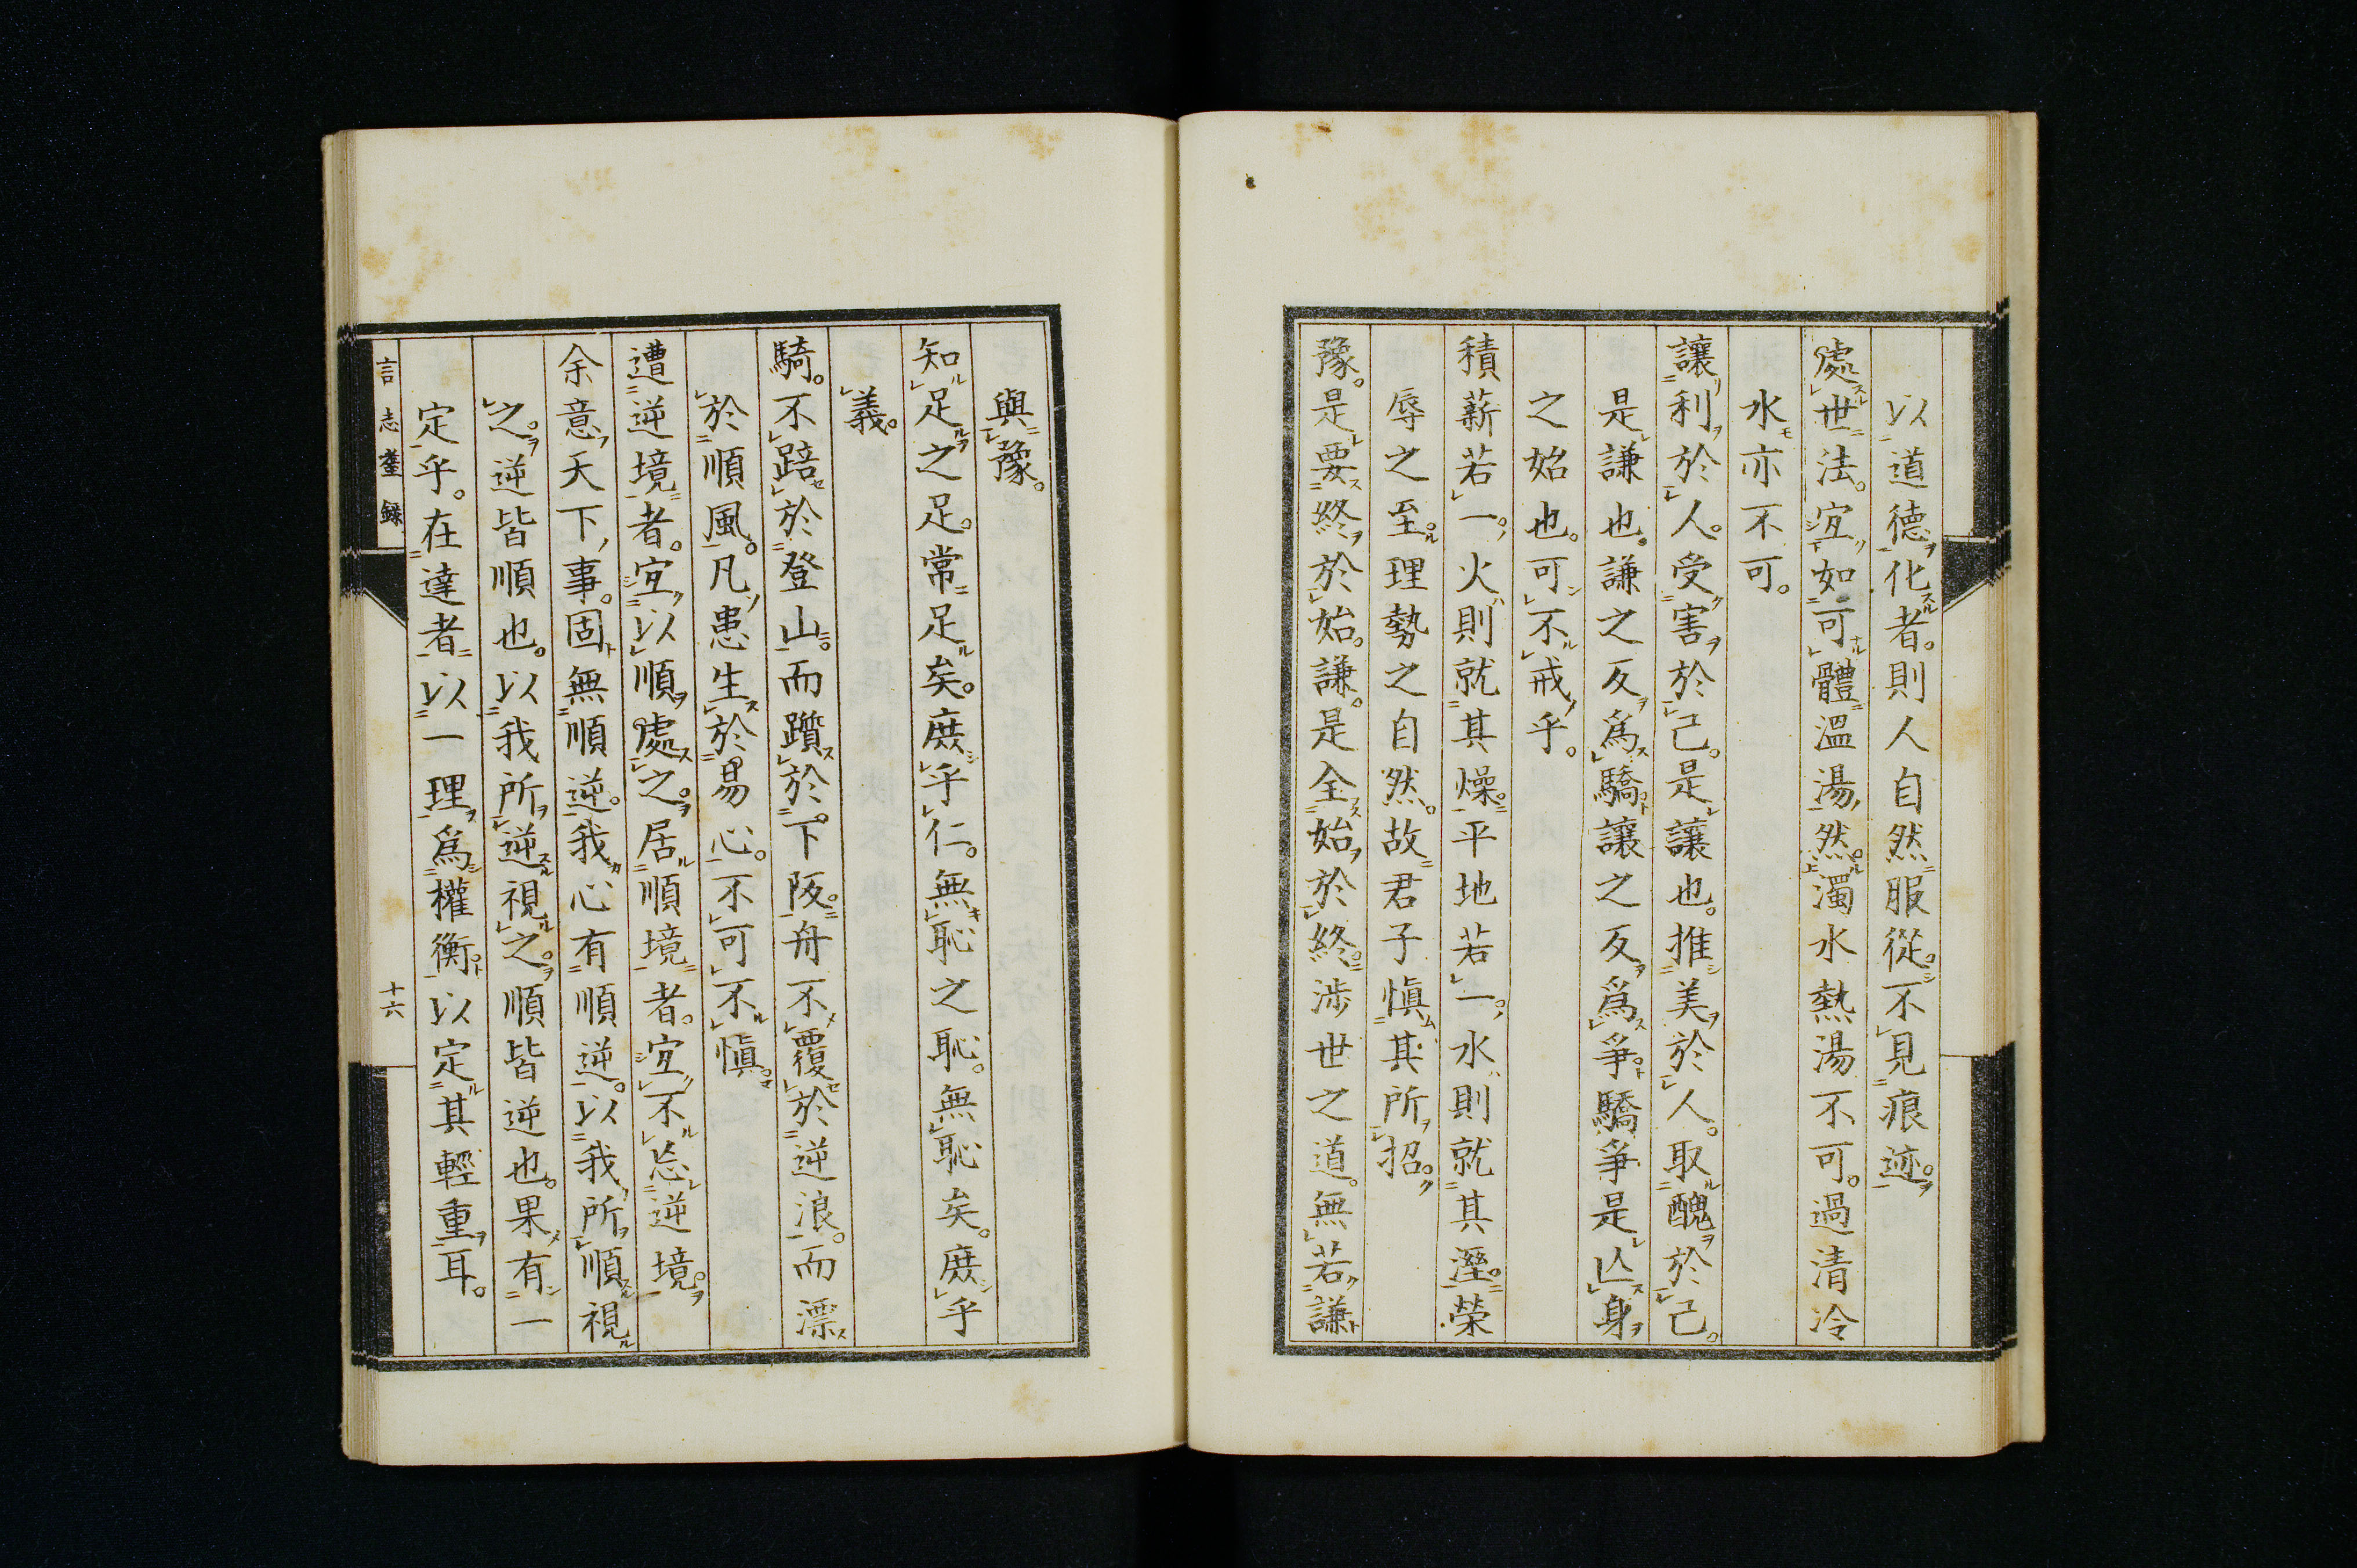 以道德化者。則人自然服從。不見痕迹。
處世法。宜如可體溫湯然。濁水熱湯不可。過清冷
水亦不可。
讓利於人。受害於己。是讓也。推美於人。取醜於己。
是謙也。謙之反爲驕。讓之反爲爭。驕爭是亡身
之始也。可不戒乎。
積薪若一。火則就其燥。平地若一。水則就其溼。榮
辱之至。理勢之自然。故君子愼其所招。
豫。是要終於始。謙。是全始於終。涉世之道。無若謙
與豫。
知足之足。常足矣。庶乎仁。無恥之恥。無恥矣。庶乎
義。
騎。不踣於登山。而躓於下阪。舟不覆於逆浪。而漂
於順風。凡患生於易心。不可不愼。
遭逆境者。宜以順處之。居順境者。宜不忘逆境。
余意天下事。固無順逆。我心有順逆。以我所順視
之。逆皆順也。以我所逆視之。順皆逆也。果有一
定乎。在達者。以一理爲權衡。以定其輕重耳。
言志耋錄
十六